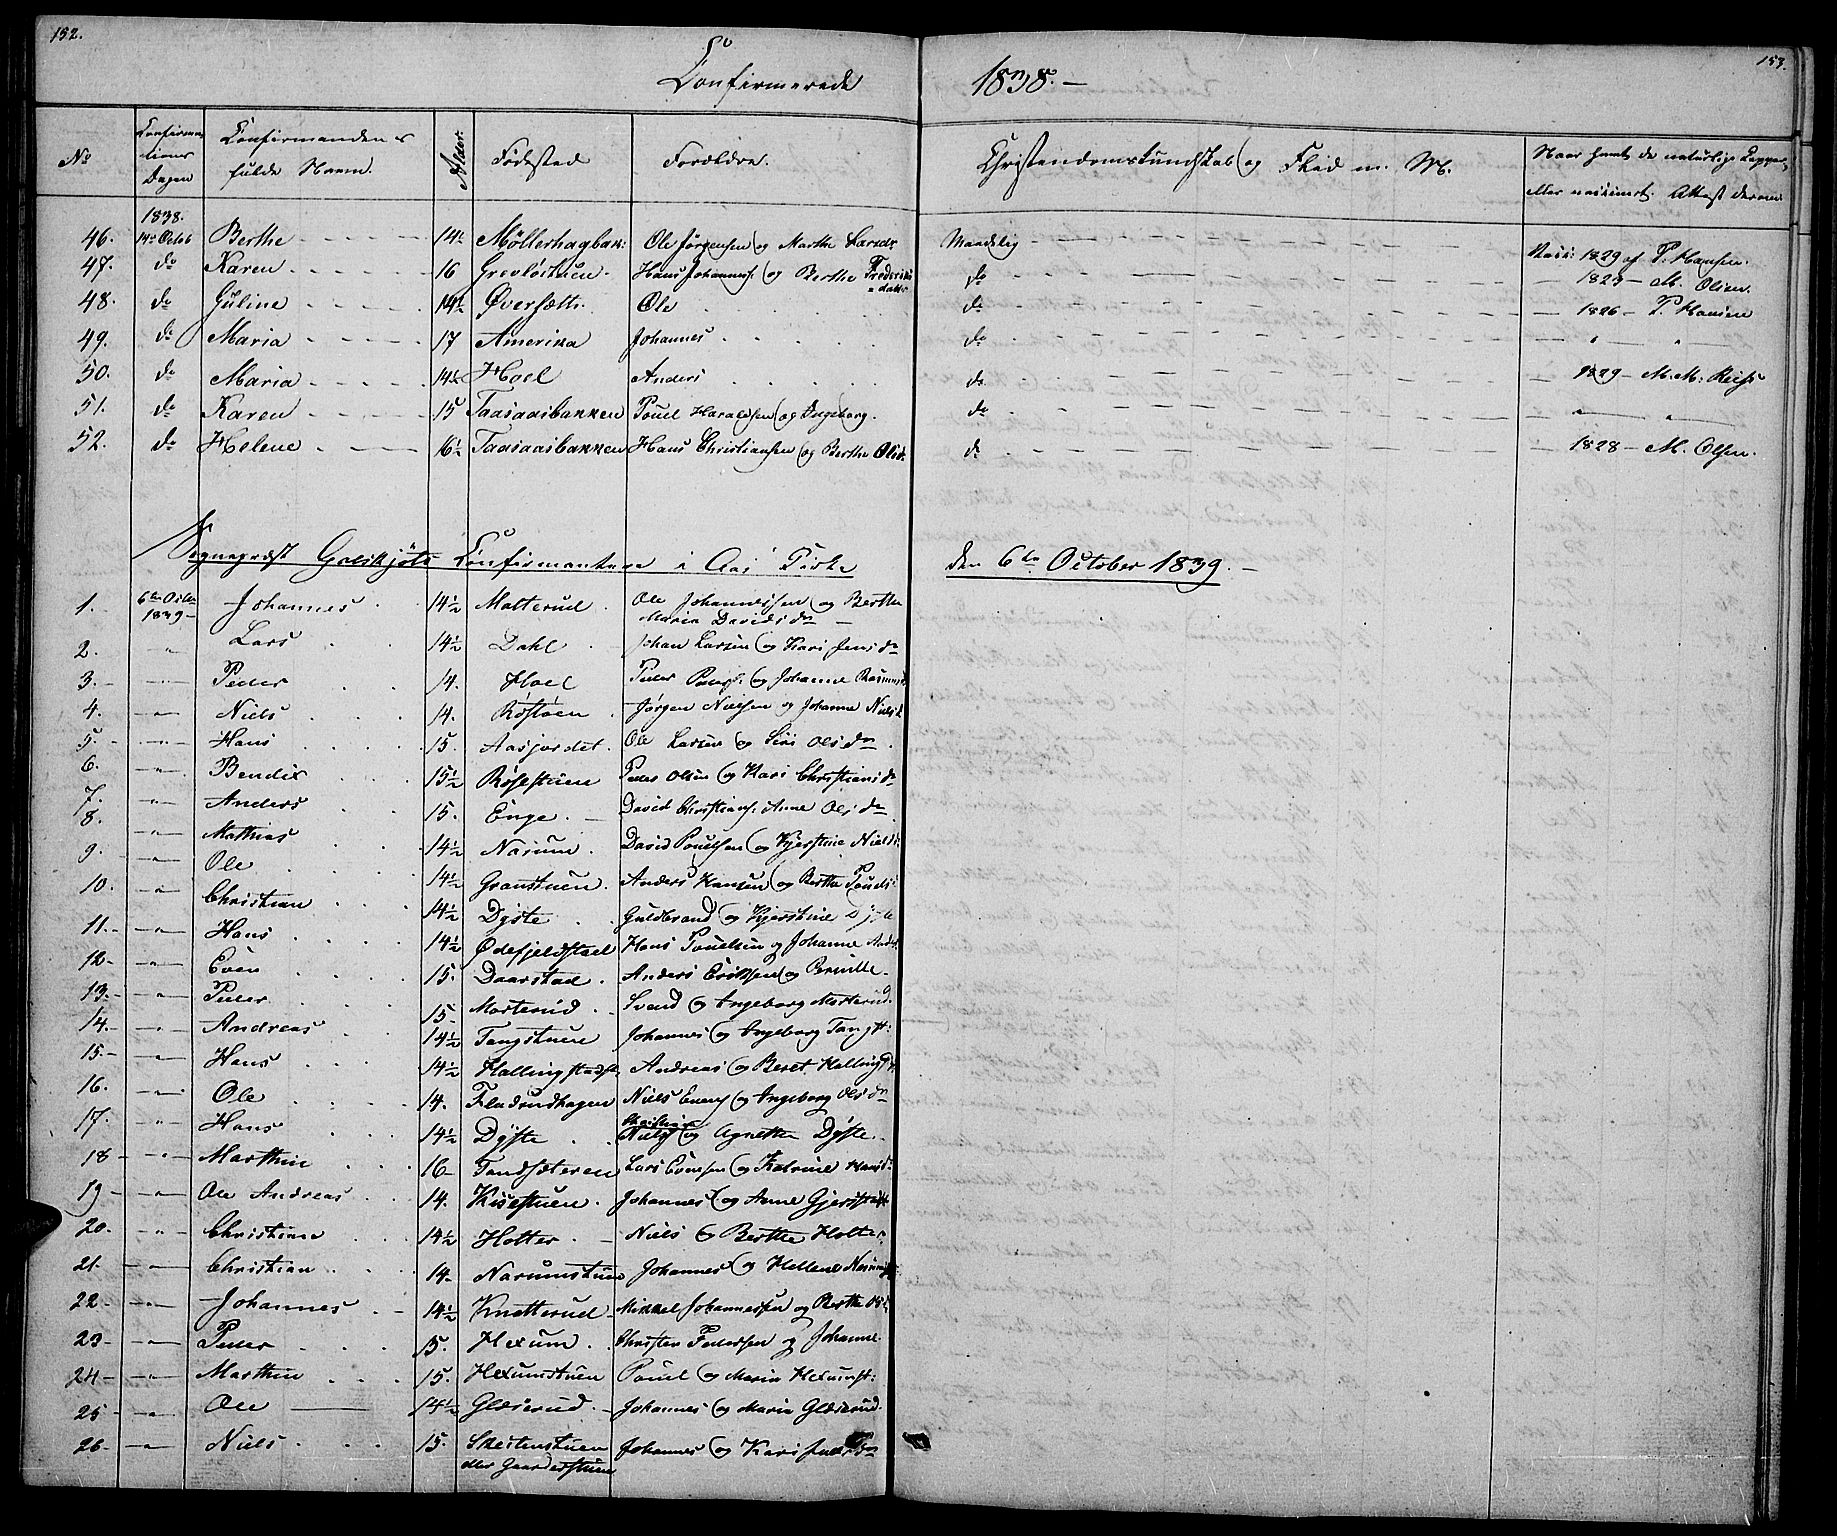 152.
153.
Confirmerede 1838.-
No Confirmations Dagen Confirmandens fulde Navn. Alder. Fødested Forældre. Christendomskundskab og Flid m. M. Naar havt de naturlige Kopper, eller vaccineret. Attest derom
1838.
46. 14de Octob Berthe 14½ Möllerhagbak: Ole Jørgensen og Marthe Larsdr Maadelig Vacc: 1829 af P. Hansen.
47. do Karen 16 Grevlöistuen. Hans Johanness: og Berthe Frederiks datter do 1823 - M. Olsen.
48. do Guline 14½ Øversætt. Ole do 1826 - P. Hansen
49. do Maria 17 Amerika Johannes do " "
50. do Maria 14½ Hoel Anders do 1829 - M. M. Reiss
51. do Karen 15 Taasaasbakken Pouel Haraldsen og Ingeborg. do " "
52. do Helene 16½ Taasaasbakken Hans Christiansen og Berthe Olsdr do 1828 - M. Olsen.
Sognepræst Confirmantere i Aas Kirke den 6te October 1839.-
1. 6te Octbr Johannes 14½ Molterud Ole Johannessen og Berthe
1839- Maria Davidsdr -
2. " Lars 14½ Dahl Johan Larsen og Kari Jensdr
3. " Peder 14. Hoel Peder Peders: og Johanne Rasmusd
4. " Niels 14. Røstøen Jørgen Nielsen og Johanne Nielsd
5. " Hans 15. Aasjordet. Ole Larsen og Siri Olsdr.
6. " Bendix 15½ Røsestuen Peder Olsen og Kari Christiansdr
7. " Anders 15. Enge. - David Christians: Anne Olsdr
8. " Mathias 14½ Narum. David Pouelsen og Kjerstine Nielsd:
9. " Ole 14½ Granstuen. Anders Hansen og Berthe Pouls:
10. " Christian 14½ Dyste Guldbrand og Kjerstine Dyste
11. " Hans 14½ Ödefjeldstael Hans Pouelsen og Johanne And
12. " Even 15. Daarstad. Anders Eriksen og Pernille.
13. " Peder 15 Morterud. Svend og Ingeborg Morterud.
14. " Andreas 14½ Tangstuen Johannes og Ingeborg Tangst:
15. " Hans 14½ Hallingstadst Andreas og Beret Halling
16. " Ole 14. Fladrudhagen Niels Evens og Ingeborg Olsdr
17. " Hans 14½ Dyste Niels og Agnethe Dyste.
18 " Marthin 16 Tandsæteren Lars Evensen og Katrine Hansd:
19 " Ole Andreas 14. Kisestuen. Johannes og Anne
20. " Christian 14½ Holter. Niels og Berthe Holter
21. " Christian 14. Narumstuen Johannes og Hellene Narumst
22. " Johannes 14½ Knetterud Mikkel Johannessen og Berthe Ols
23. " Peder 15. Hexum. Christen Pedersen og Johanne
24. " Marthin 15. Hexumstuen Pouel og Maria Hexumst:
25. " Ole 14½ Glæserud. Johannes og Maria Glæserud.
26. " Niels 15. Skestenstuen Johannes og Kari
eller Gaarderstuen